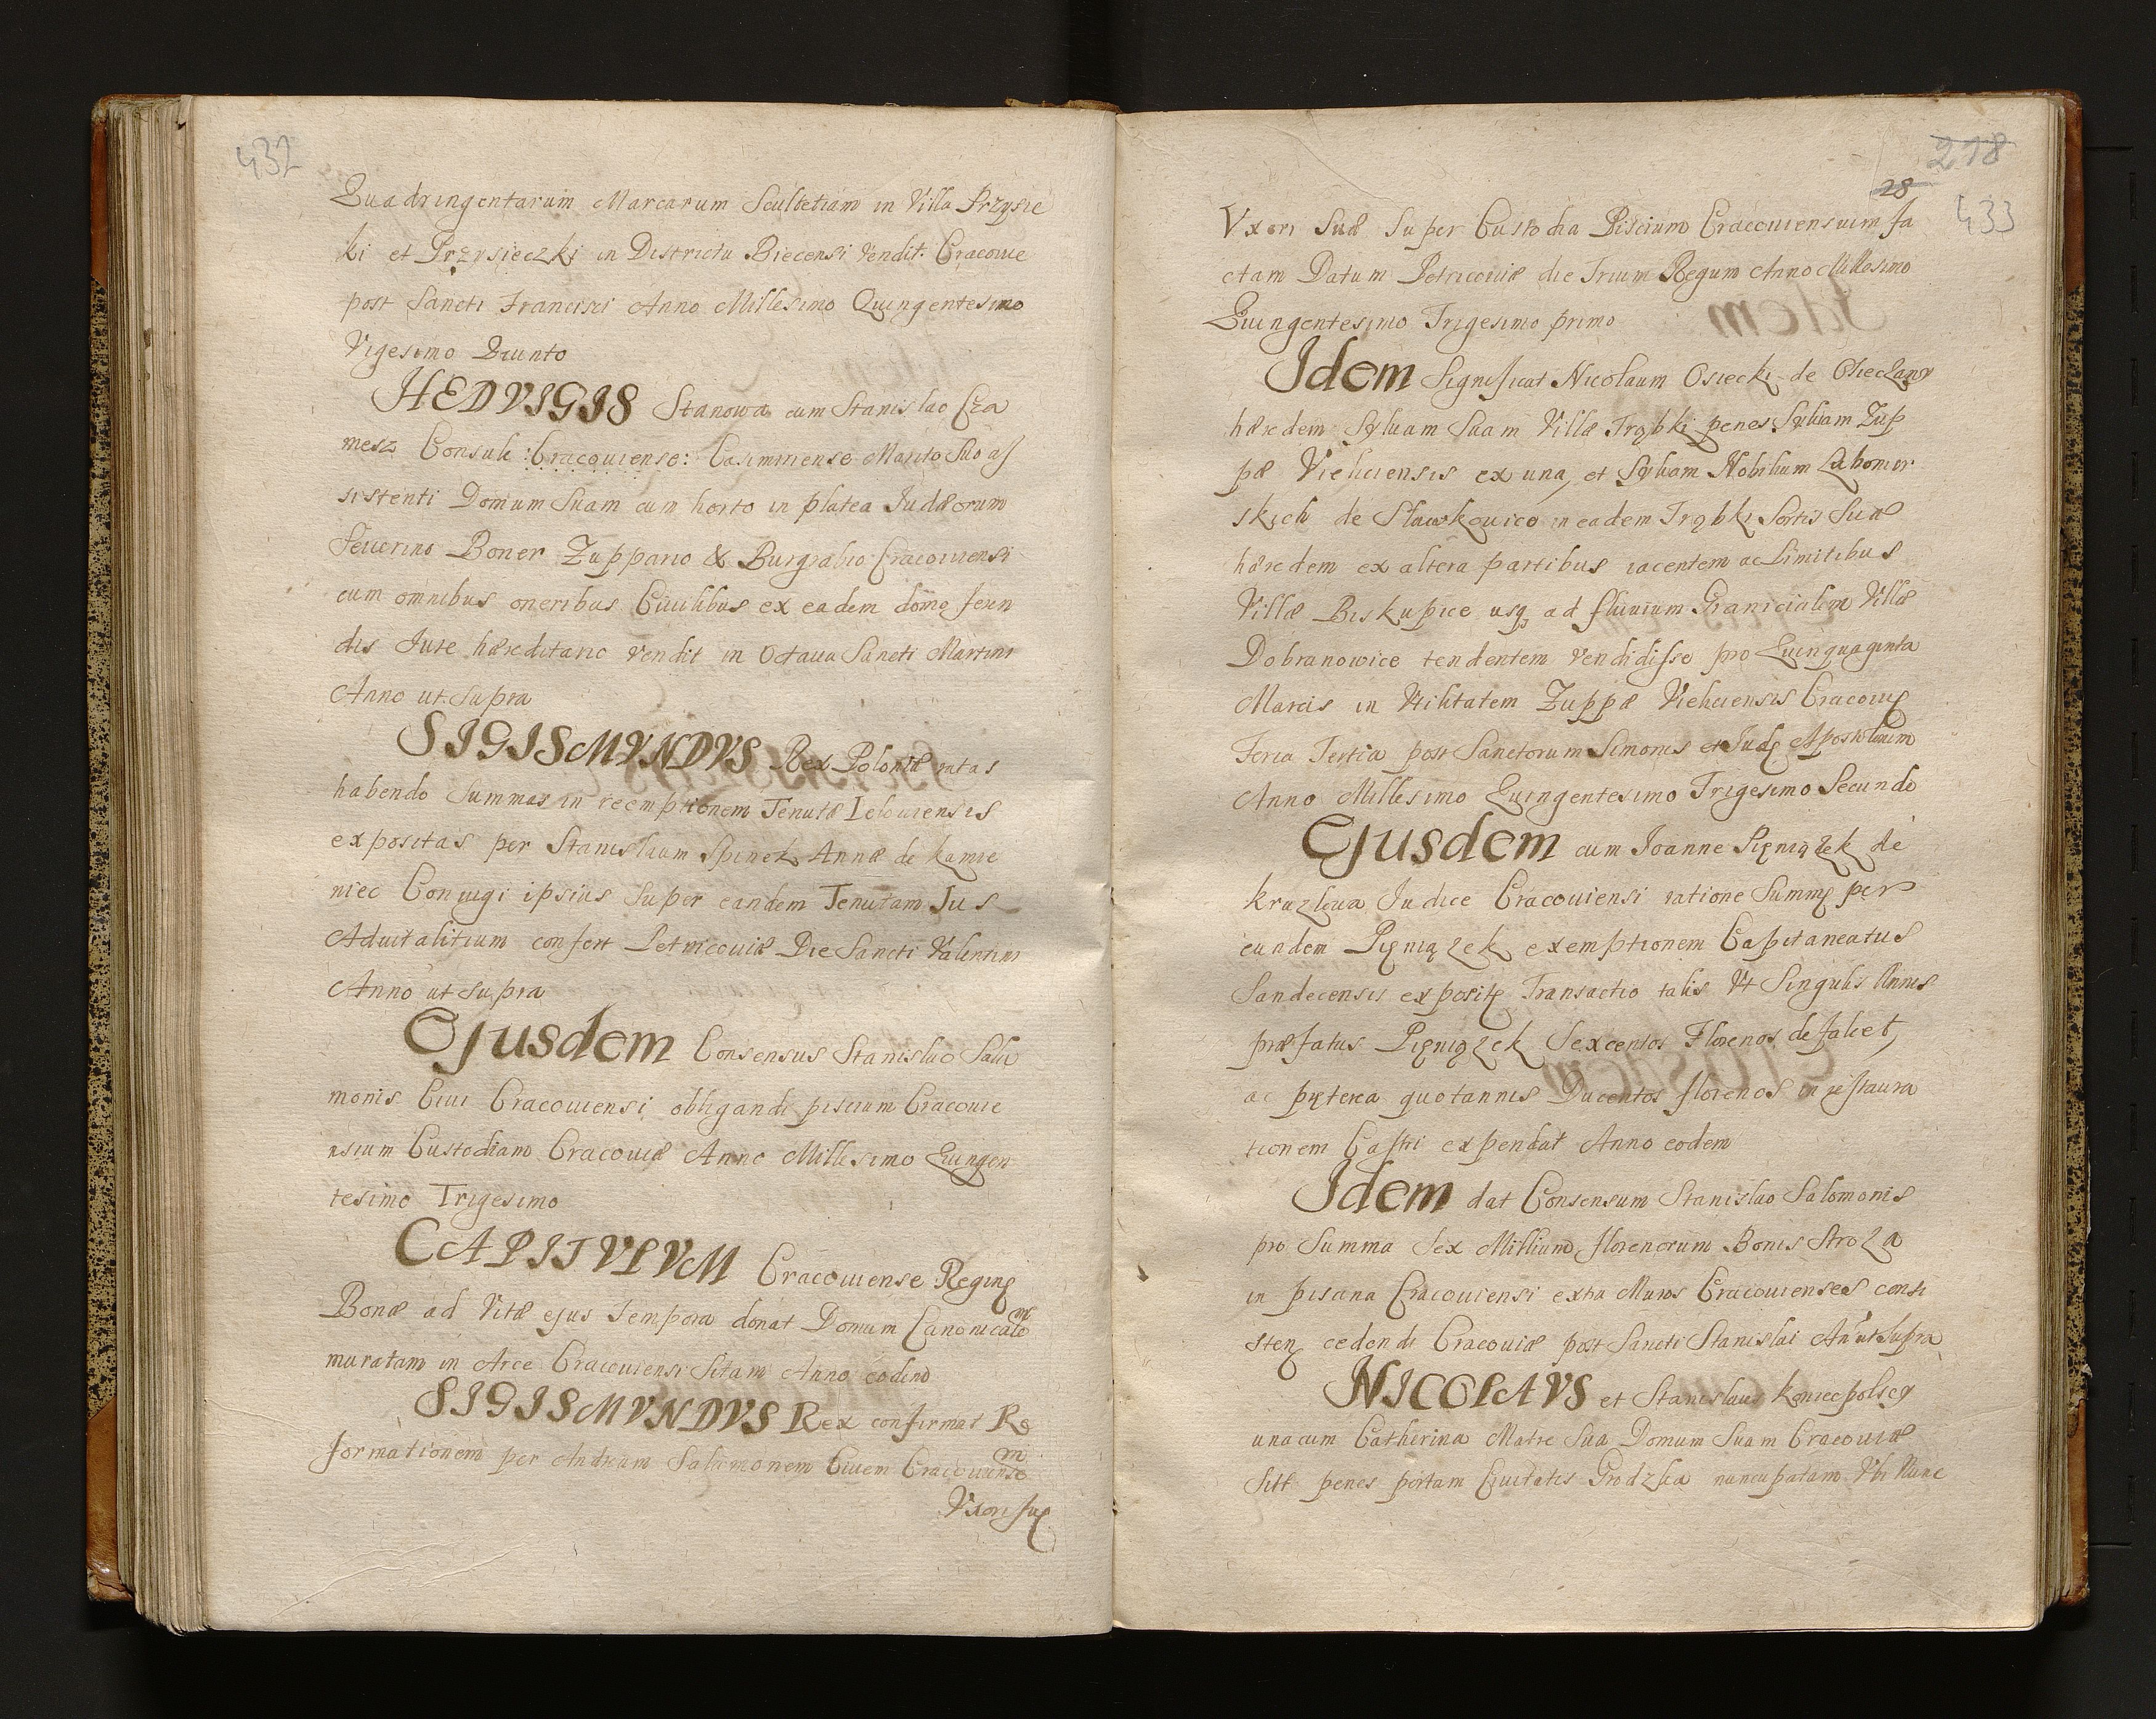 432
Quadringentarum Marcarum Scultetiam in Villa Przysie
ki et Przysieczki in Districtu Biecensi Vendit. Cracovie
post Sancti Francisci Anno Millesimo Quingentesimo
Vigesimo Quinto
HEDVIGIS Stanowa cum Stanislao Cza
mesz Consule :Cracouiense: Casimiriense Marito Suo as
sistenti Domum Suam cum horto in platea Judæorum
Seuerino Boner Zuppario & Burgrabio Cracouiensi
cum omnibus oneribus Ciuilibus ex eadem domo feren
dis Jure hæreditario Vendit in Octaua Sancti Martini
Anno ut Supra
SIGISMVNDVS Rex Poloniæ ratas
habendo Summas in reemptionem Tenutæ Lelouiensis
expositas per Stanislaum Spinek Annæ de Kamie
niec Conjugi ipsius Super eandem Tenutam Jus
Aduitalitium confert Petricouiæ Die Sancti Valentini
Anno ut Supra
Ejusdem Consensus Stanislao Salo
monis Ciui Cracouiensi obligandi piscium Cracouie
nsium Custodiam Cracouiæ Anno Millesimo Quingen
tesimo Trigesimo
CAPITVLVM Cracouiense Reginę
Bonæ ad Vitæ ejus Tempora donat Domum Canonicale
m
muratam in Arce Cracouiensi Sitam Anno eodem
SIGISMVNDVS Rex confirmat Re
formationem per Andream Salomonem Ciuem Cracouiense
m
Vxori suę
218
28
433
Vxori Suæ Super Custodia Piscium Cracouiensium fa
ctam Datum Petricouiæ die Trium Regum Anno Millesimo
Quingentesimo Trigesimo primo
Idem Significat Nicolaum Osiecki de
hæredem Syluam Suam Villæ Trąbki penes Syluam Zup
pæ Vieliciensis ex una, et Syluam Nobilium Lubomir
skich de Slawkowice in eadem Trąbki Sortis Suæ
hæredem ex altera partibus iacentem ac Limitibus
Villæ Biskupice usq ad fluuium Granicialem Villæ
Dobranowice tendentem Vendidisse pro Quinquaginta
Marcis in Vtilitatem Zuppæ Vieliciensis Cracouię
Feria Tertia post Sanctorum Simonis et Judę Apostolorum
Anno Millesimo Quingentesimo Trigesimo Secundo
Ejusdem cum Joanne Pięniążek de
Kruzlowa Judice Cracouiensi ratione Summę per
eundem Pięniążek exemptionem Capitaneatus
Sandecensis expositę Transactio talis Vt Singulis Annis
præfatus Pięniążek Sexcentos Florenos defalcet,
ac pręterea quotannis Ducentos florenos in restaura
tionem Castri expendat Anno eodem
Idem dat Consensum Stanislao Salomonis
pro Summa Sex Millium florenorum Bonis Stroża
in piscina Cracouiensi extra Muros Cracouienses consi
stenę cedendi Cracouiæ post Sancti Stanislai Anõ ut Supra
NICOLAVS et Stanislaus Koniecpolscy
una cum Catherina Matre Sua Domum Suam Cracouiæ
Sitt penes portam Ciuitatis Grodzka nuncupatam Vbi Nunc